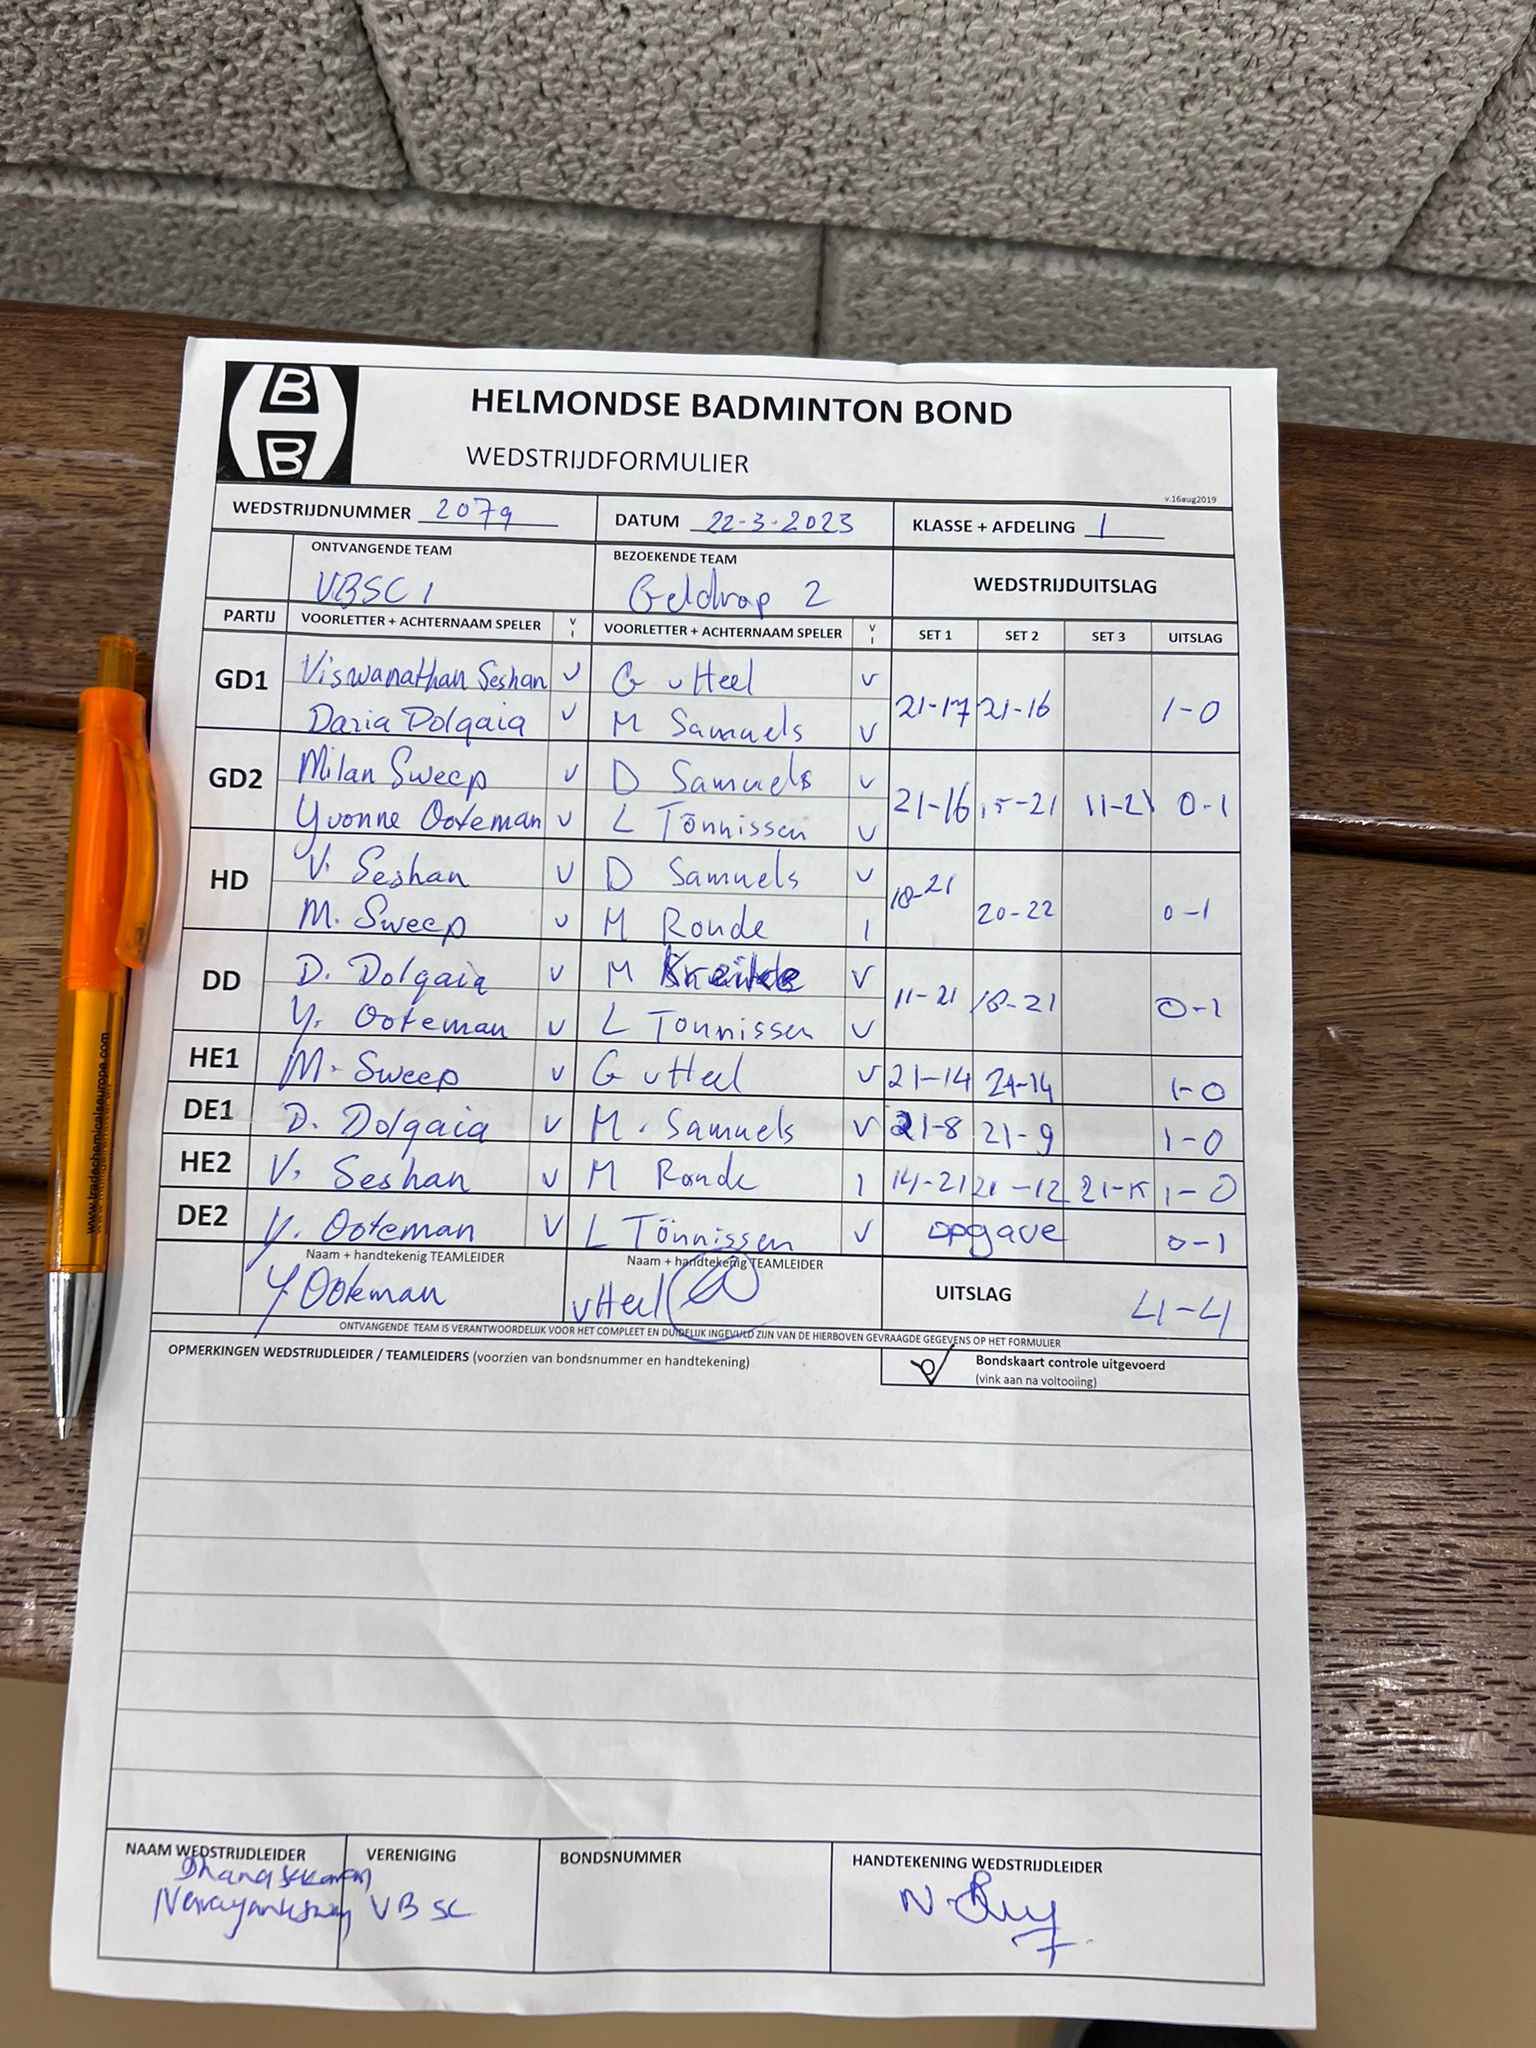 B
B
HELMONDSE BADMINTON BOND
WEDSTRIJDFORMULIER
v.16aug2019
WEDSTRIJDNUMMER 2079 DATUM 22-3-2023 KLASSE + AFDELING 1
ONTVANGENDE TEAM BEZOEKENDE TEAM WEDSTRIJDUITSLAG
VBSC 1 Geldrop 2
PARTIJ VOORLETTER + ACHTERNAAM SPELER V I VOORLETTER + ACHTERNAAM SPELER V I SET 1 SET 2 SET 3 UITSLAG
GD1 Viswanathan Seshan V G vHeel V 21-17 21-16 1-0
Daria Dolgaia V M Samuels V
GD2 Milan Sweep V D Samuels V 21-16 15-21 11-21 0-1
Yvonne Ooteman V L Tönnissen V
HD V. Seshan V D Samuels V 18-21 20-22 0-1
M. Sweep V M Ronde I
DD D. Dolgaia V M V 11-21 18-21 0-1
Y. Ooteman V L Tonnissen V
HE1 M. Sweep V G vHeel V 21-14 21-14 1-0
DE1 D. Dolgaia V M. Samuels V 21-8 21-9 1-0
HE2 V. Seshan V M Ronde I 14-21 21-12 21-15 1-0
DE2 Y. Ooteman V L Tönnissen V opgave 0-1
Naam + handtekenig TEAMLEIDER Naam + handtekenig TEAMLEIDER
Y Ooteman vHeel UITSLAG 4-4
ONTVANGENDE TEAM IS VERANTWOORDELIJK VOOR HET COMPLEET EN DUIDELIJK INGEVULD ZIJN VAN DE HIERBOVEN GEVRAAGDE GEGEVENS OP HET FORMULIER
OPMERKINGEN WEDSTRIJDLEIDER / TEAMLEIDERS (voorzien van bondsnummer en handtekening)
Bondskaart controle uitgevoerd
(vink aan na voltooiing)
NAAM WEDSTRIJDLEIDER VERENIGING BONDSNUMMER HANDTEKENING WEDSTRIJDLEIDER
VBSC
www.tradechemicalseurope.com